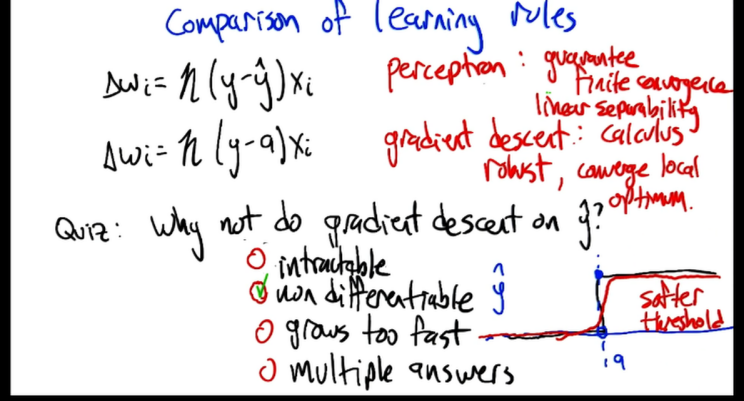 Comparison of learning rules
Δwi = η (y-ŷ)xi
perceptron: guarantee
finite convergence
linear separability
Δwi = η (y-a)xi
gradient descent: calculus
robust, converge local
optimum.
Quiz: Why not do gradient descent on ŷ?
intractable
non differentiable
grows too fast
multiple answers
ŷ
softer
threshold
a